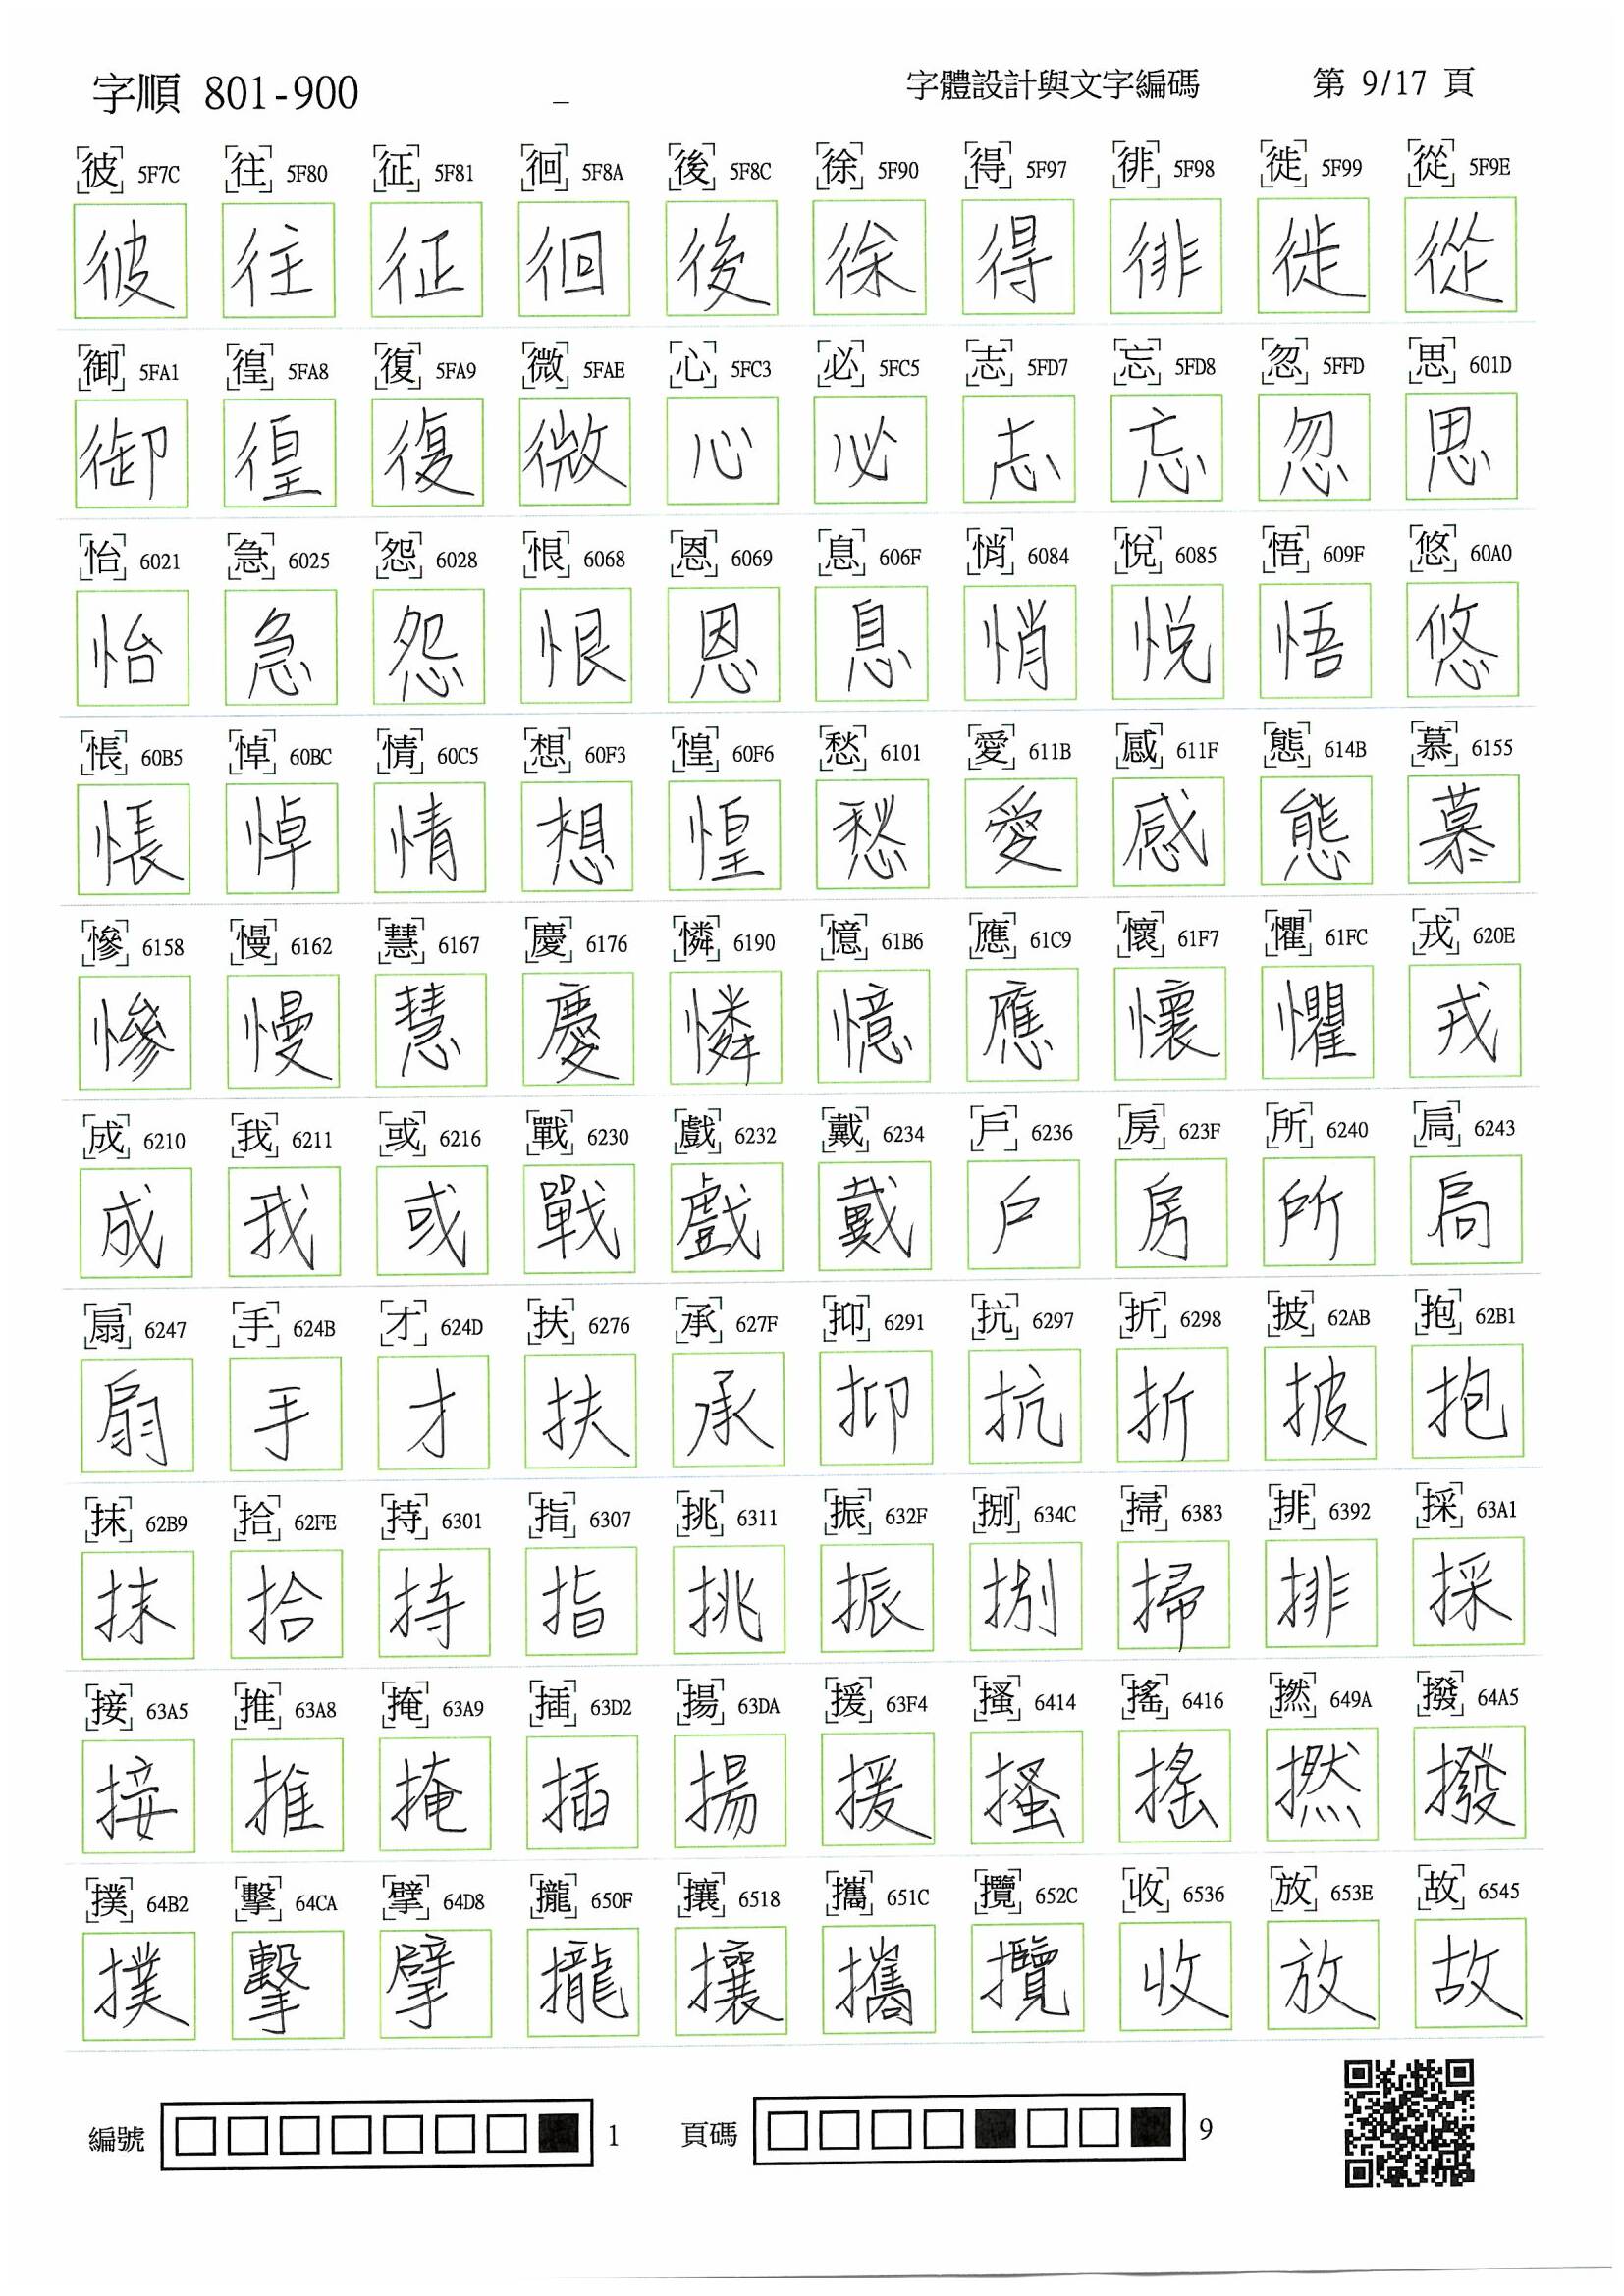 字順 801-900 _ 字體設計與文字編碼 第 9/17 頁
彼 5F7C 往 5F80 征 5F81 徊 5F8A 後 5F8C 徐 5F90 得 5F97 徘 5F98 徙 5F99 從 5F9E
彼 往 征 徊 後 徐 得 徘 徙 從
御 5FA1 徨 5FA8 復 5FA9 微 5FAE 心 5FC3 必 5FC5 志 5FD7 忘 5FD8 忽 5FFD 思 601D
御 徨 復 微 心 必 志 忘 忽 思
怡 6021 急 6025 怨 6028 恨 6068 恩 6069 息 606F 悄 6084 悅 6085 悟 609F 悠 60A0
怡 急 怨 恨 恩 息 悄 悅 悟 悠
悵 60B5 悼 60BC 情 60C5 想 60F3 惶 60F6 愁 6101 愛 611B 感 611F 態 614B 慕 6155
悵 悼 情 想 惶 愁 愛 感 態 慕
慘 6158 慢 6162 慧 6167 慶 6176 憐 6190 憶 61B6 應 61C9 懷 61F7 懼 61FC 戎 620E
慘 慢 慧 慶 憐 憶 應 懷 懼 戎
成 6210 我 6211 或 6216 戰 6230 戲 6232 戴 6234 戶 6236 房 623F 所 6240 扃 6243
成 我 或 戰 戲 戴 戶 房 所 扃
扇 6247 手 624B 才 624D 扶 6276 承 627F 抑 6291 抗 6297 折 6298 披 62AB 抱 62B1
扇 手 才 扶 承 抑 抗 折 披 抱
抹 62B9 拾 62FE 持 6301 指 6307 挑 6311 振 632F 捌 634C 掃 6383 排 6392 採 63A1
抹 拾 持 指 挑 振 捌 掃 排 採
接 63A5 推 63A8 掩 63A9 插 63D2 揚 63DA 援 63F4 搔 6414 搖 6416 撚 649A 撥 64A5
接 推 掩 插 揚 援 搔 搖 撚 撥
撲 64B2 擊 64CA 擘 64D8 攏 650F 攘 6518 攜 651C 攬 652C 收 6536 放 653E 故 6545
撲 擊 擘 攏 攘 攜 攬 收 放 故
編號 1 頁碼 9